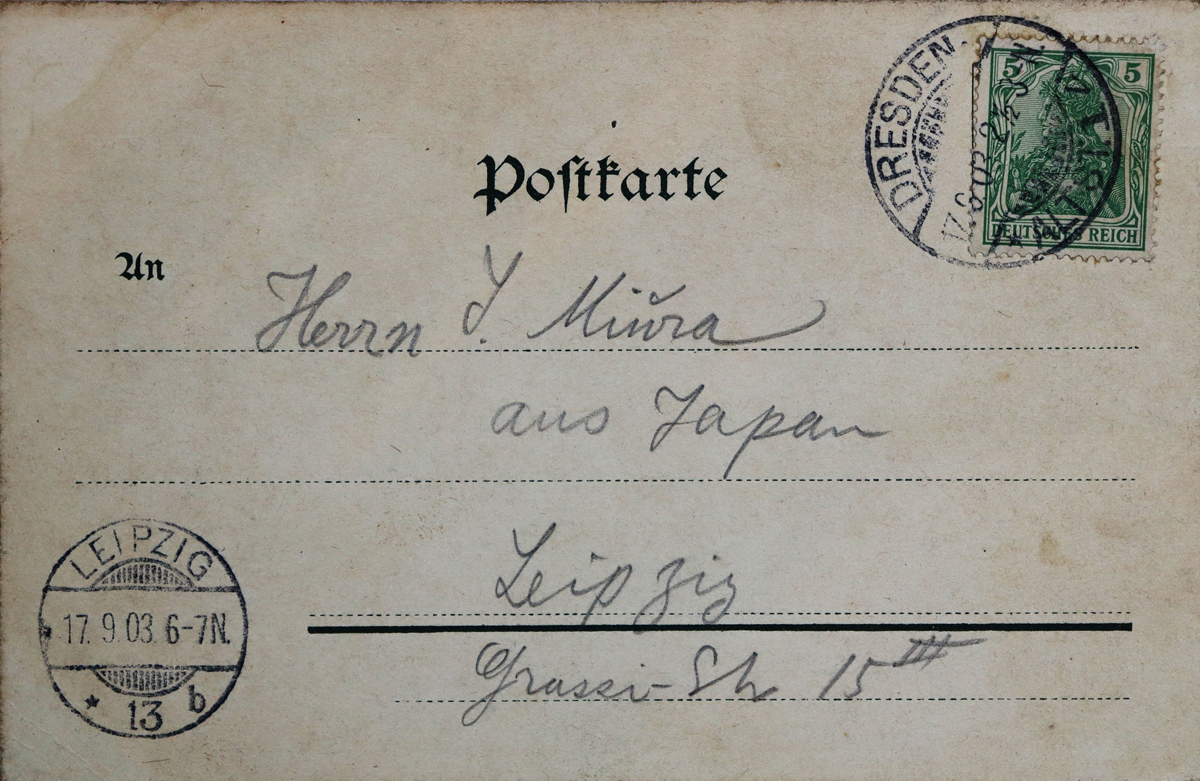 DRESDEN-
ALTST.
17.9.03. 2½-3 N.
5 5
DEUTSCHES REICH
Postkarte
An
Herrn Y. Miura
aus Japan
LEIPZIG
17. 9. 03. 6-7N.
* 13 b
Leipzig
Grassi-Str 15 III